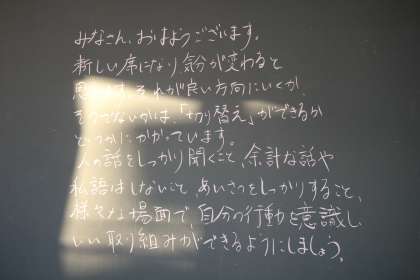 みなさん、おはようございます。
新しい席になり気分が変わると
思います。それが良い方向にいくか、
そうでないかは、「切り替え」ができるか
どうかにかかっています。
人の話をしっかり聞くこと、余計な話や
私語はしないこと、あいさつをしっかりすること、
様々な場面で、自分の行動を意識し、
いい取り組みができるようにしましょう。